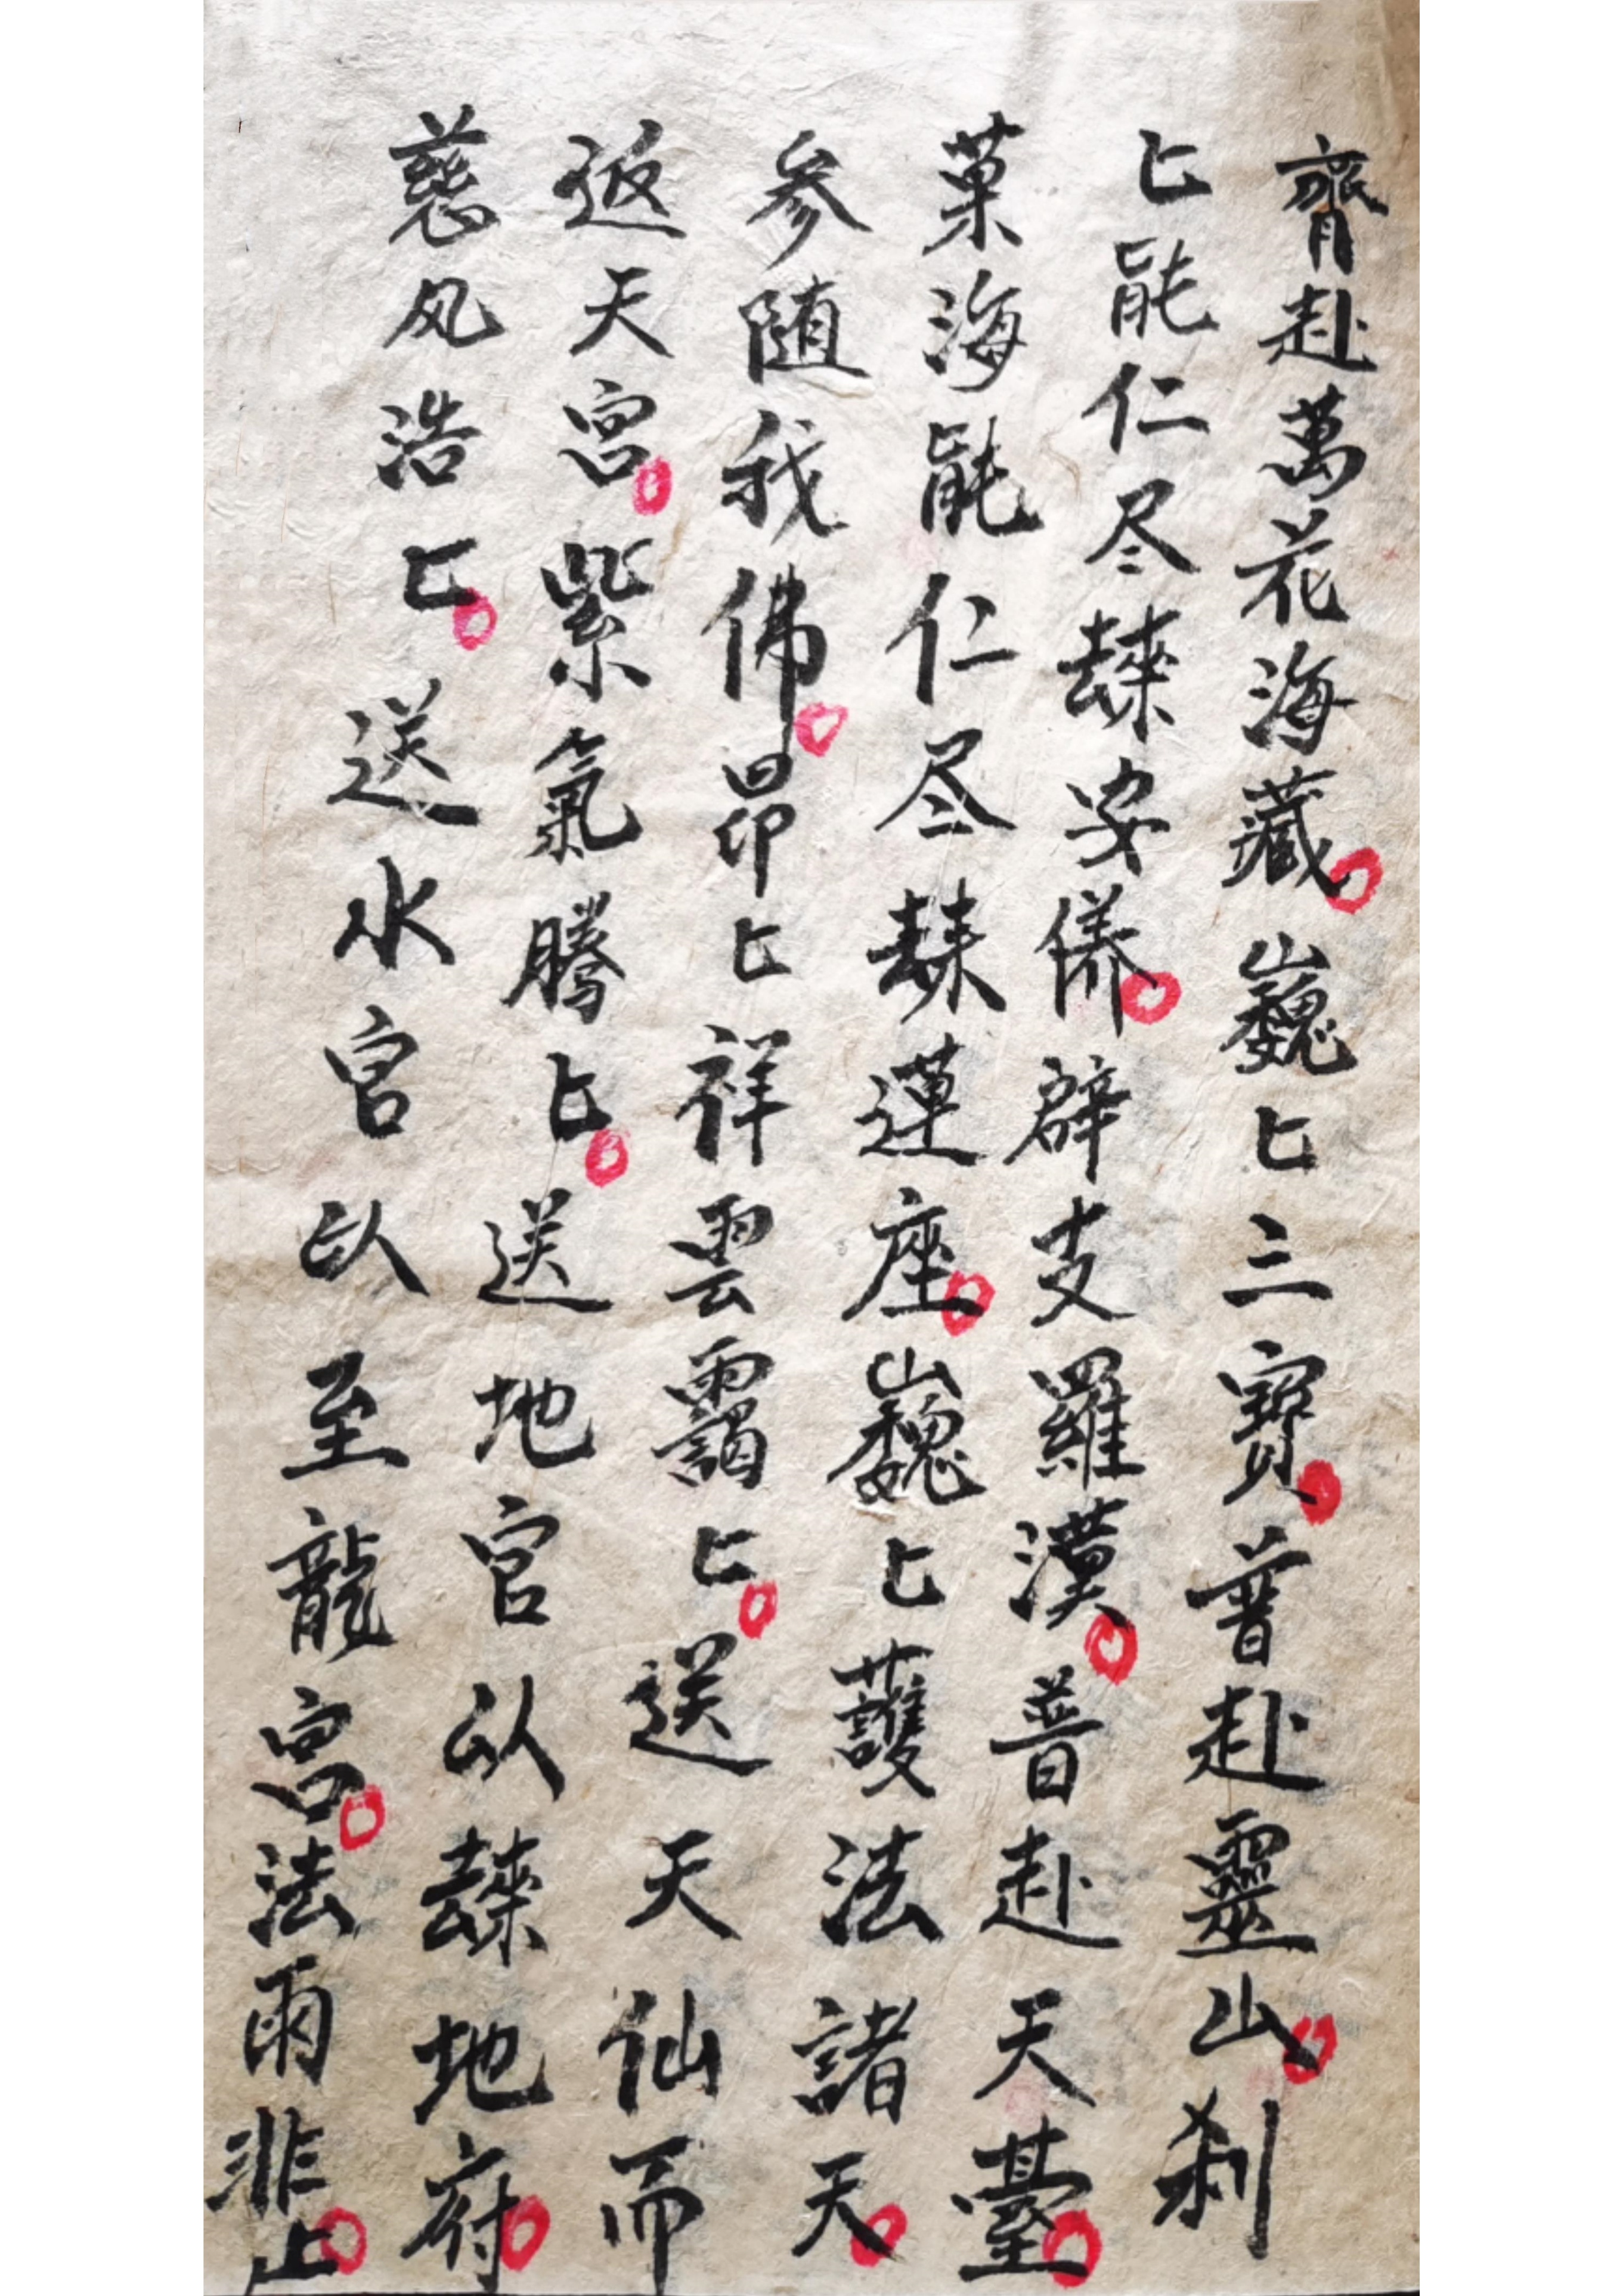 齊赴萬花海藏巍匕三寳普赴靈山刹
匕能仁尽𣫍安僊辟支羅漢普赴天臺
菓海能仁尽蓮座巍匕護法諸天
参随我佛昂匕祥雲靄匕送天仙而
返天宮紫氣騰匕送地官以地府
慈风浩匕送水官以至龍宮法雨非上